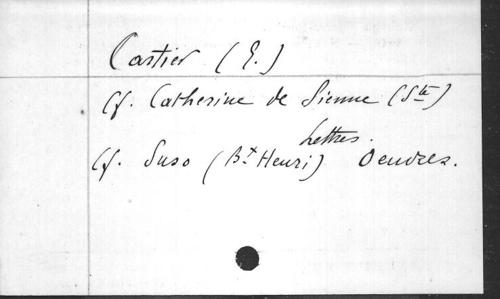 Cartier (E.)
Cf. Catherine de Sienne (Ste)
Lettres.
Cf. Suso (Bx Henri) Oeuvres.